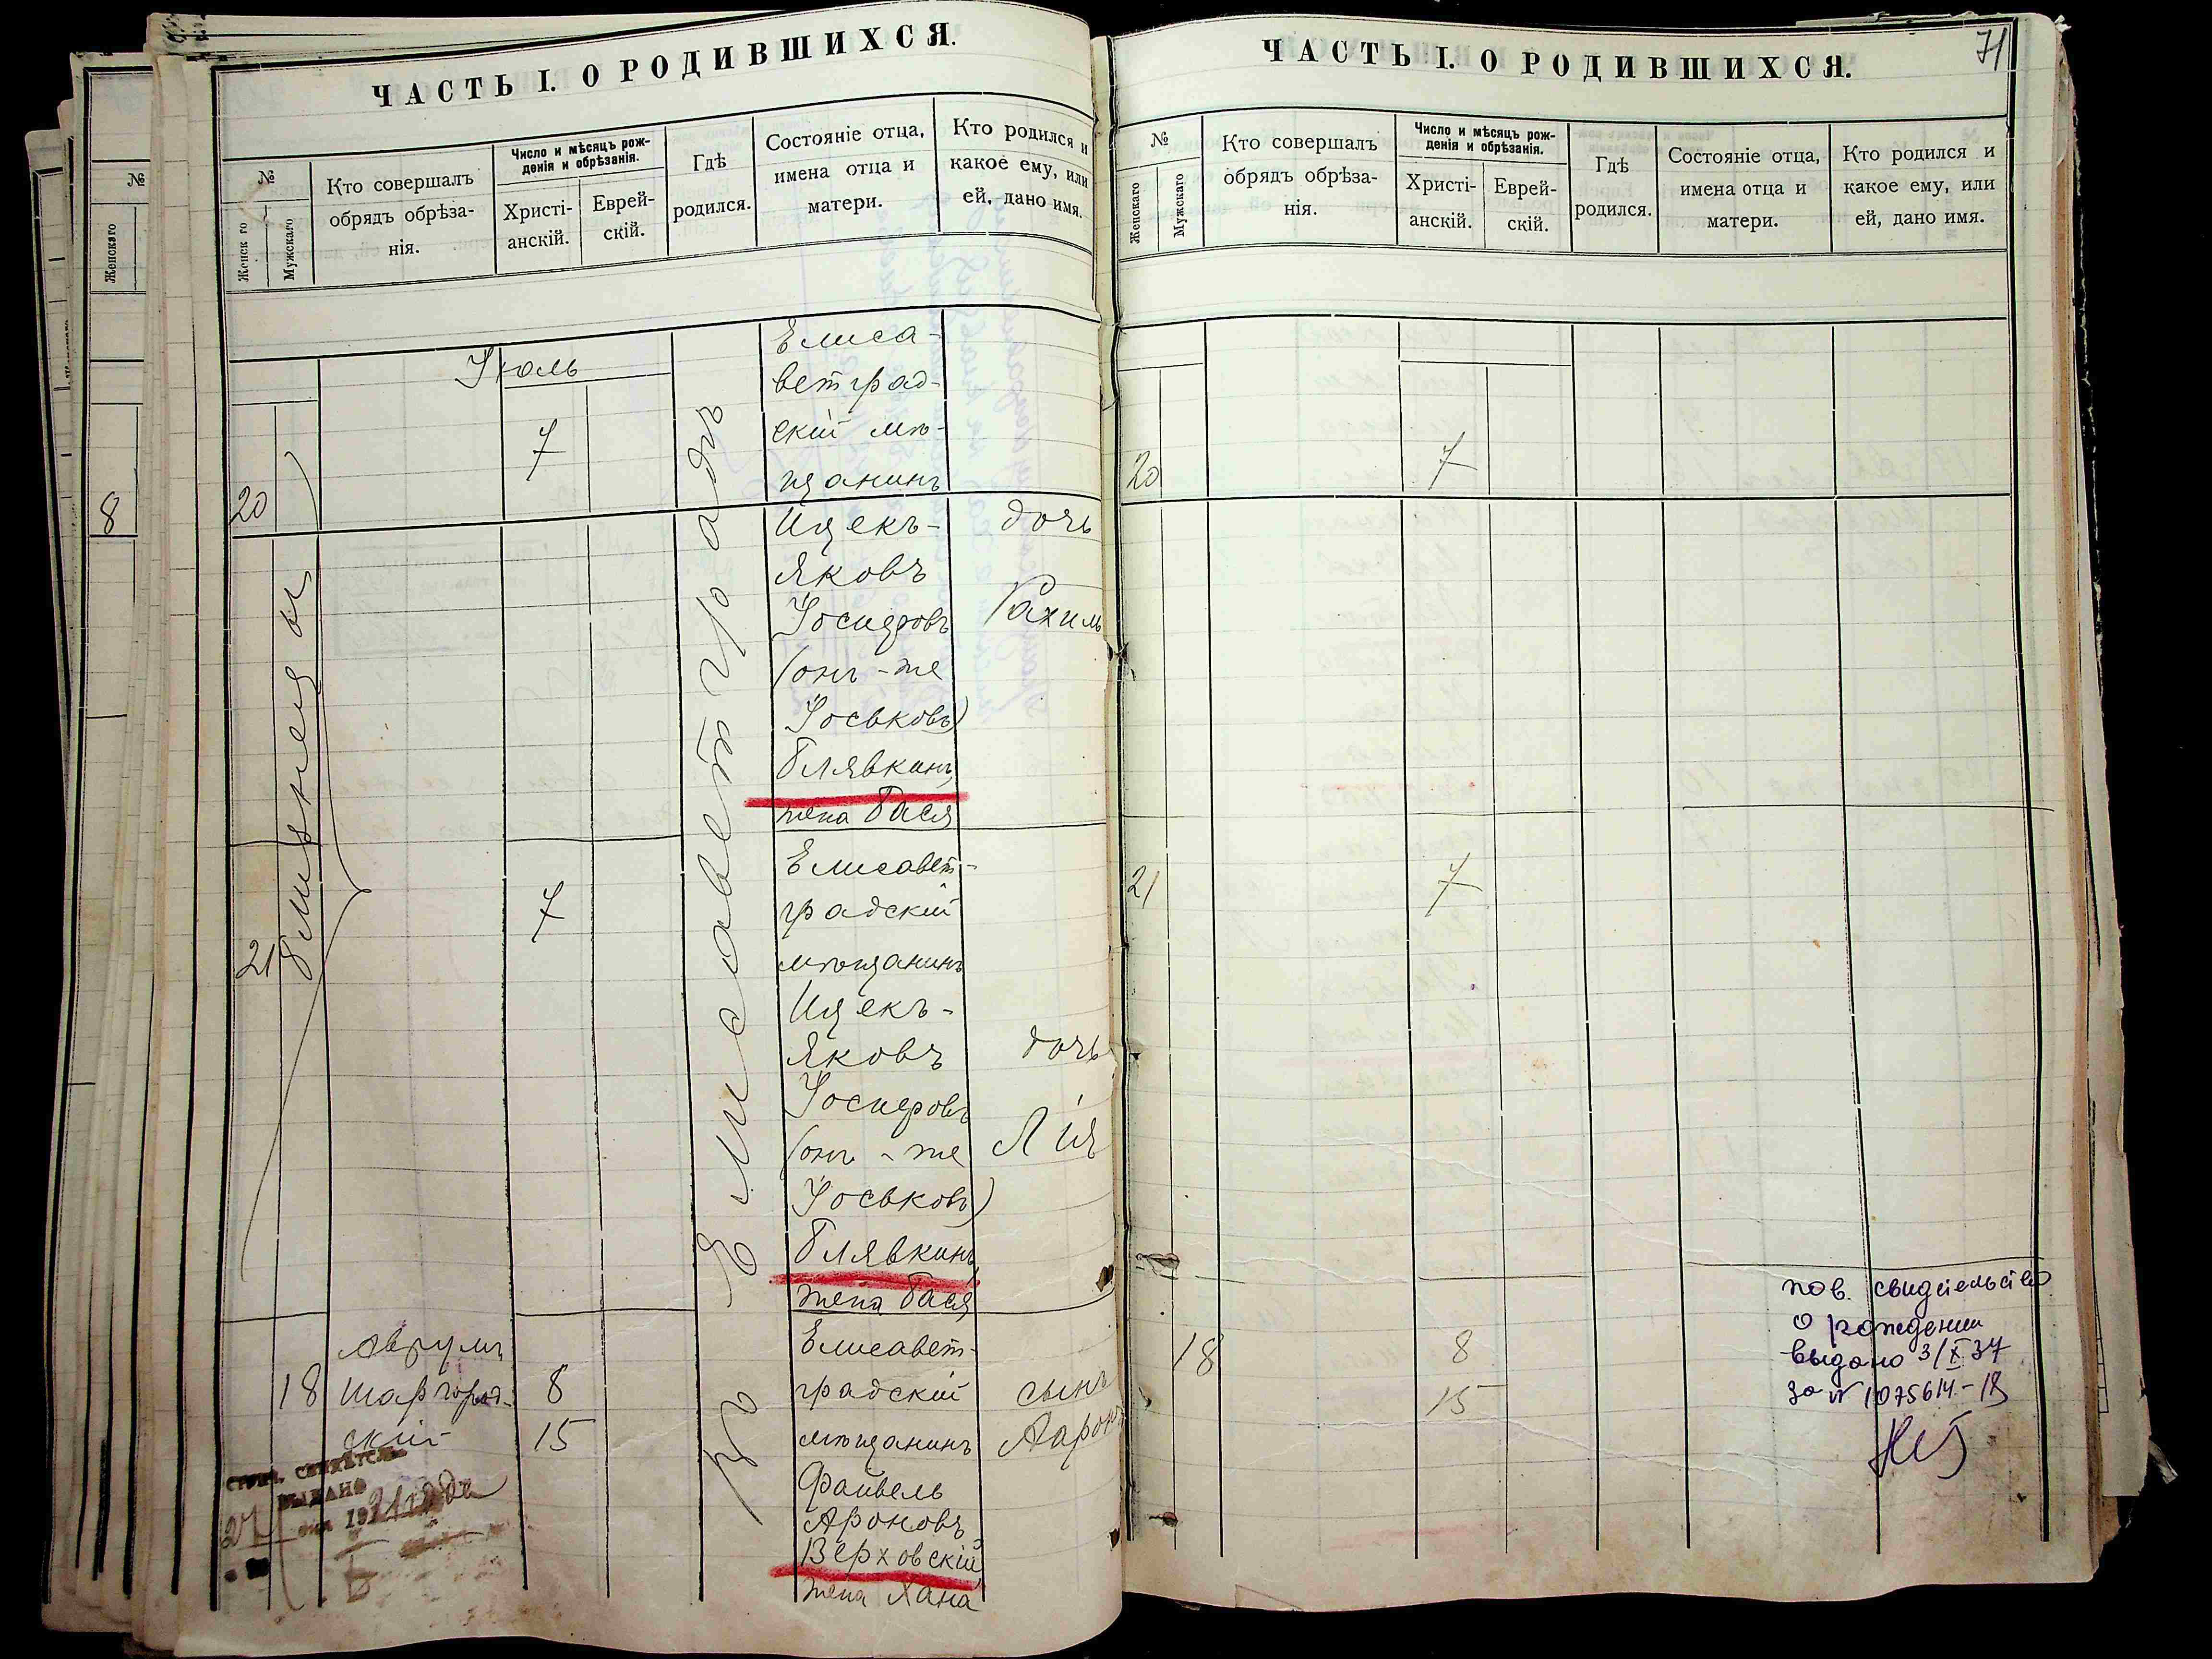 ЧАСТЬ I. О РОДИВШИХСЯ.
№
Женскаго
№
Женск го
Мужскаго
Кто совершалъ
обрядъ обрѣза-
нія.
Число и мѣсяцъ рож-
денія и обрѣзанія.
Христі-
анскій.
Еврей-
скій.
Гдѣ
родился.
Состояніе отца,
имена отца и
матери.
Кто родился и
какое ему, или
ей, дано имя.
8
Іюль
20
7
Елиса-
ветград-
скій мѣ-
щанинъ
Ицекъ-
Яковъ
Іосифовъ
(онъ-же
Іоськовъ)
Блявкинъ,
жена Бася
дочь
Рахиль
Близнецы
Въ Елисаветградѣ
21
7
Елисавет-
градскій
мѣщанинъ
Ицекъ-
Яковъ
Іосифовъ
(онъ-же
Іоськовъ)
Блявкинъ,
жена Бася
дочь
Лія
18
Аврумъ
Шаргород-
скій
8
15
Елисавет-
градскій
мѣщанинъ
Файвель
Ароновъ
Верховскій,
жена Хана
сынъ
Ааронъ
ВЫДАНО
ЧАСТЬ I. О РОДИВШИХСЯ.
71
№
Женскаго
Мужскаго
Кто совершалъ
обрядъ обрѣза-
нія.
Число и мѣсяцъ рож-
денія и обрѣзанія.
Христі-
анскій.
Еврей-
скій.
Гдѣ
родился.
Состояніе отца,
имена отца и
матери.
Кто родился и
какое ему, или
ей, дано имя.
20
7
21
7
18
8
15
пов. свидетельство
о рождении
выдано 3/X 37
за №